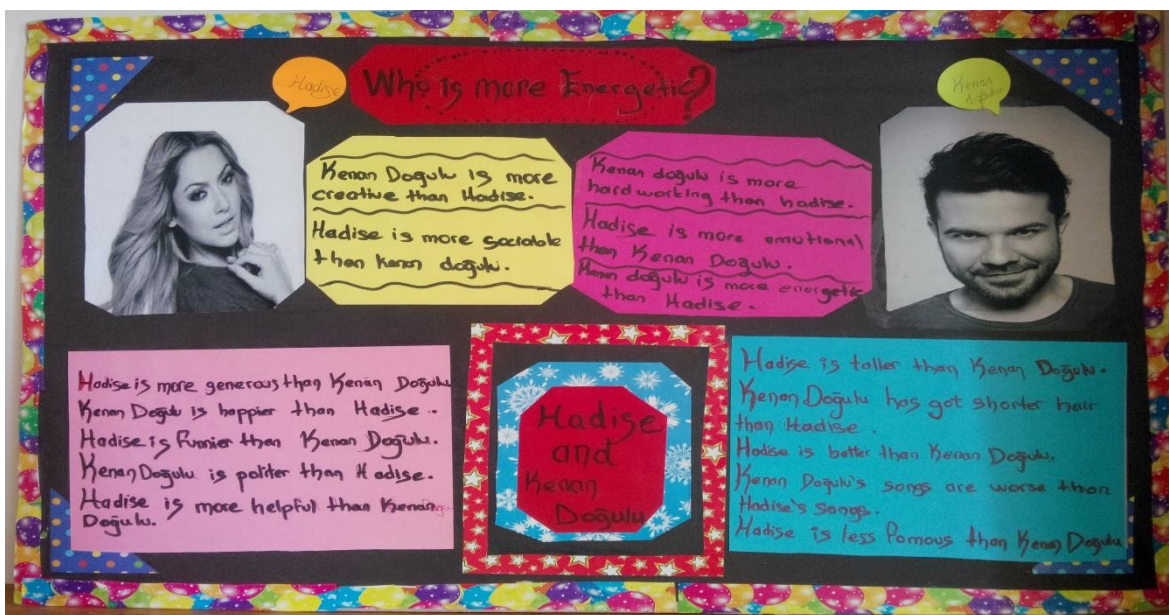 Who is more Energetic?
Hadise
Kenan
doğulu
Kenan Doğulu is more
creative than Hadise.
Hadise is more sociable
than Kenan doğulu.
Kenan doğulu is more
hard working than hadise.
Hadise is more emotional
than Kenan Doğulu.
Kenan doğulu is more energetic
than Hadise.
Hadise is more generous than Kenan Doğulu
Kenan Doğulu is happier than Hadise.
Hadise is Funnier than Kenan Doğulu.
Kenan Doğulu is politer than Hadise.
Hadise is more helpful than Kenan Doğu
Doğulu.
Hadise
and
Kenan
Doğulu
Hadise is taller than Kenan Doğulu.
Kenan Doğulu has got shorter hair
than Hadise.
Hadise is better than Kenan Doğulu.
Kenan Doğulu's songs are worse than
Hadise's songs.
Hadise is less Famous than Kenan Doğulu